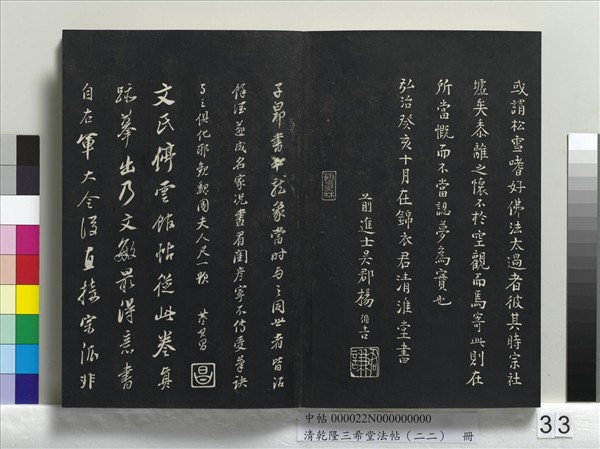 或謂松雪嗜好佛法太過者彼其時宗社
墟矣黍離之懷不於空觀而焉寄此則在
所當慨而不當認夢爲實也
弘治癸亥十月在錦衣君清淮堂書
前進士吳郡楊循吉
子昂書中龍象當時与之同世者皆沾
餘瀝並成名家況畫眉閨彥寧不傳筆訣
与之俱化耶觀魏國夫人尺一類 董其昌
昌
文氏停雲館帖從此卷真
跡摹出乃文敏最得意書
自右軍大令後直接宗派非
中帖 000022N000000000
清乾隆三希堂法帖（二二） 冊
33